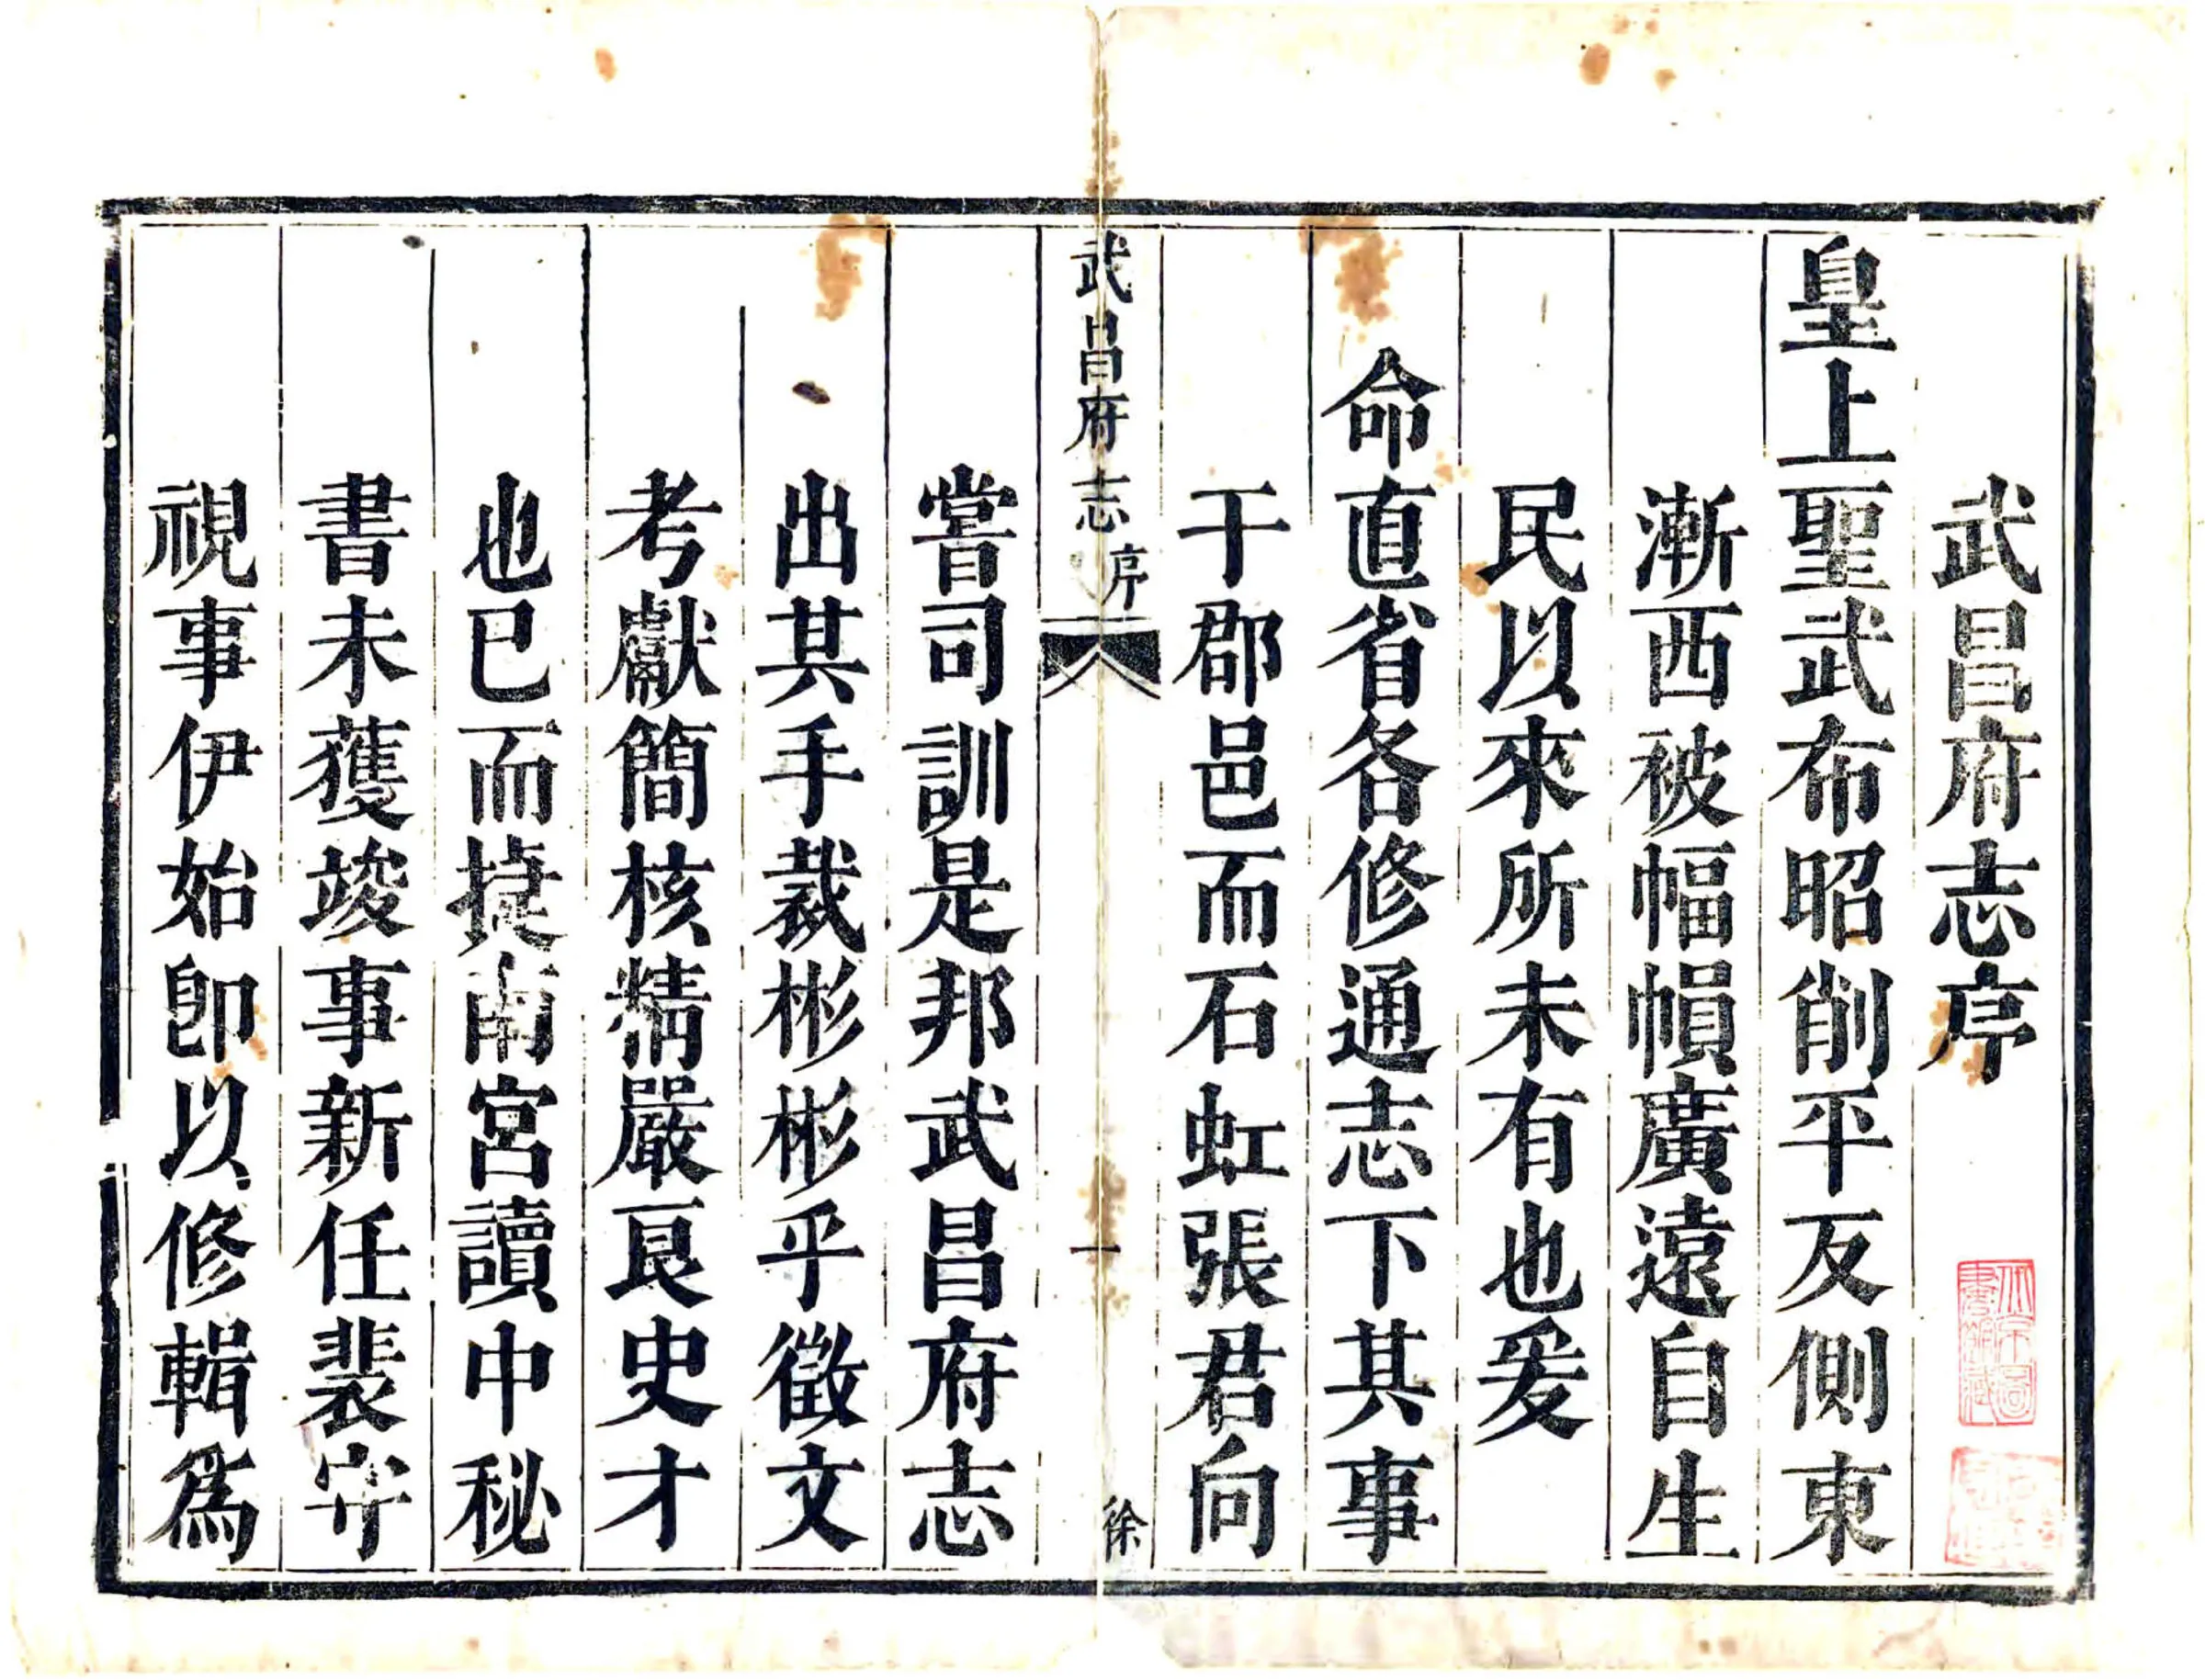 武昌府志序
皇上聖武布昭削平反側東
漸西被幅幀廣遠自生
民以來所未有也爰
命直省各修通志下其事
于郡邑而石虹張君向
武昌府志 序 一 徐
嘗司訓是邦武昌府志
出其手裁彬彬乎徵文
考獻簡核精嚴良史才
也已而捷南宮讀中秘
書未獲竣事新任裴守
視事伊始即以修輯爲